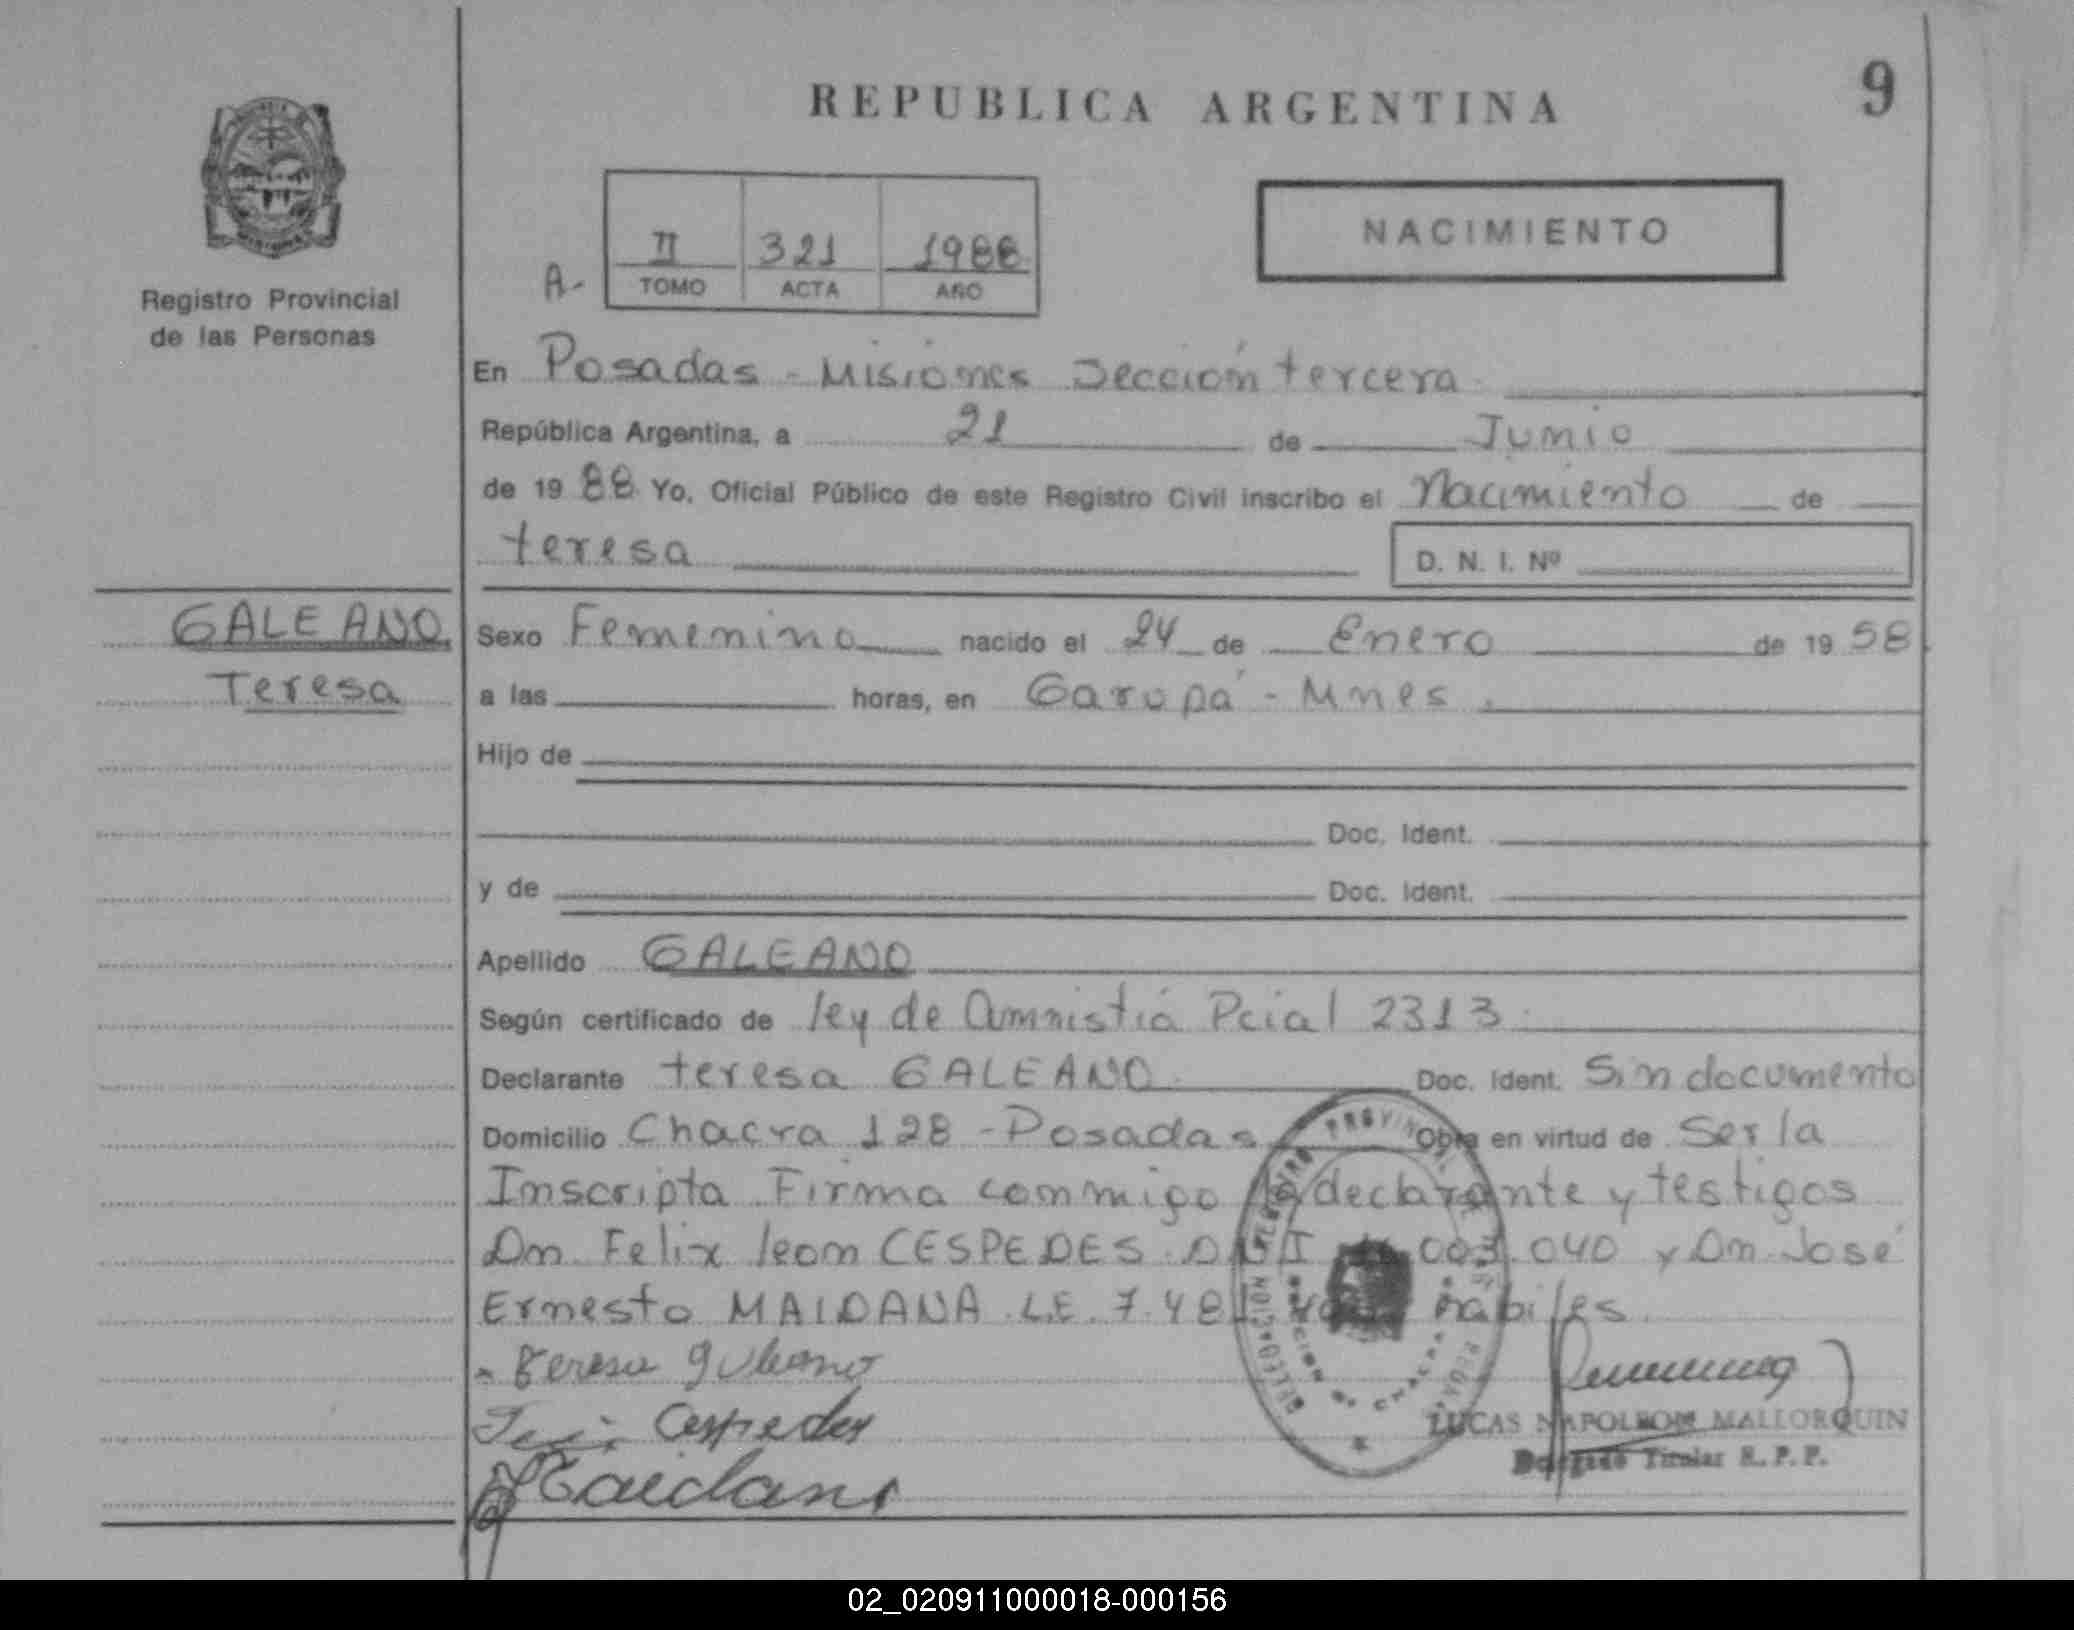 REPUBLICA ARGENTINA
9
Registro Provincial
de las Personas
A-
II 321 1988
TOMO ACTA AÑO
NACIMIENTO
En Posadas - Misiones Sección tercera
República Argentina, a 21 de Junio
de 1988 Yo, Oficial Público de este Registro Civil inscribo el Nacimiento de
teresa D. N. I. Nº
GALEANO
Teresa
Sexo Femenino nacido el 24 de Enero de 1958
a las horas, en Garupá - Mnes.
Hijo de
Doc. Ident.
y de Doc. Ident.
Apellido GALEANO
Según certificado de ley de amnistía Pcial 2313
Declarante teresa GALEANO Doc. Ident. Sin documento
Domicilio Chacra 128 - Posadas Obra en virtud de Ser la
Inscripta Firma conmigo la declarante y testigos
Dn Felix leon CESPEDES 003.040 y Dn José
Ernesto MAIDANA L.E. 7.48 habiles
Teresa
Cespedes
Maidana
LUCAS NAPOLEON MALLORQUIN
Delegado Titular R. P. P.
02_020911000018-000156